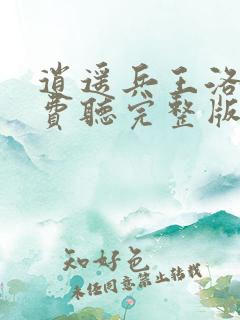 逍遥兵王洛
費聽完整版
知好色
未经同意禁止转载